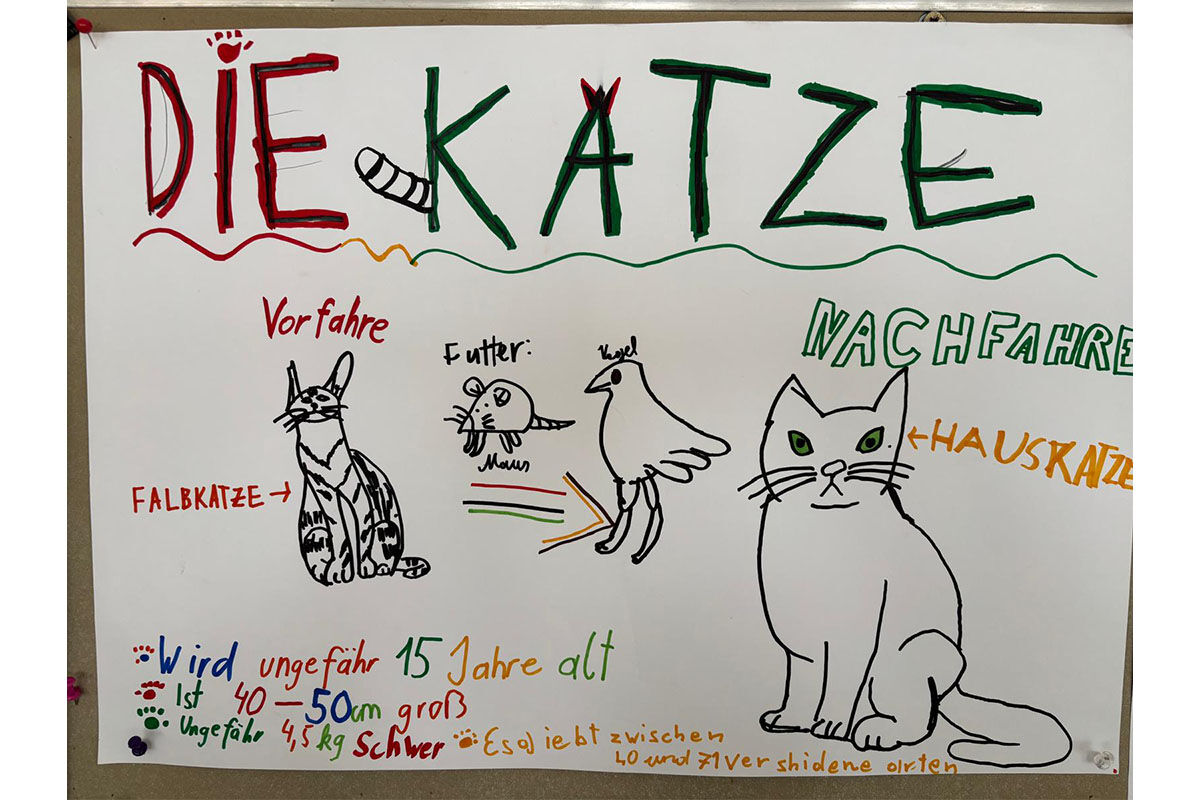 DIE KATZE
Vorfahre
Futter:
Vogel
NACHFAHRE
Maus
FALBKATZE →
← HAUSKATZE
Wird ungefähr 15 Jahre alt
Ist 40 – 50 cm groß
Ungefähr 4,5 kg Schwer
Es giebt zwischen
40 und 71 vershidene arten